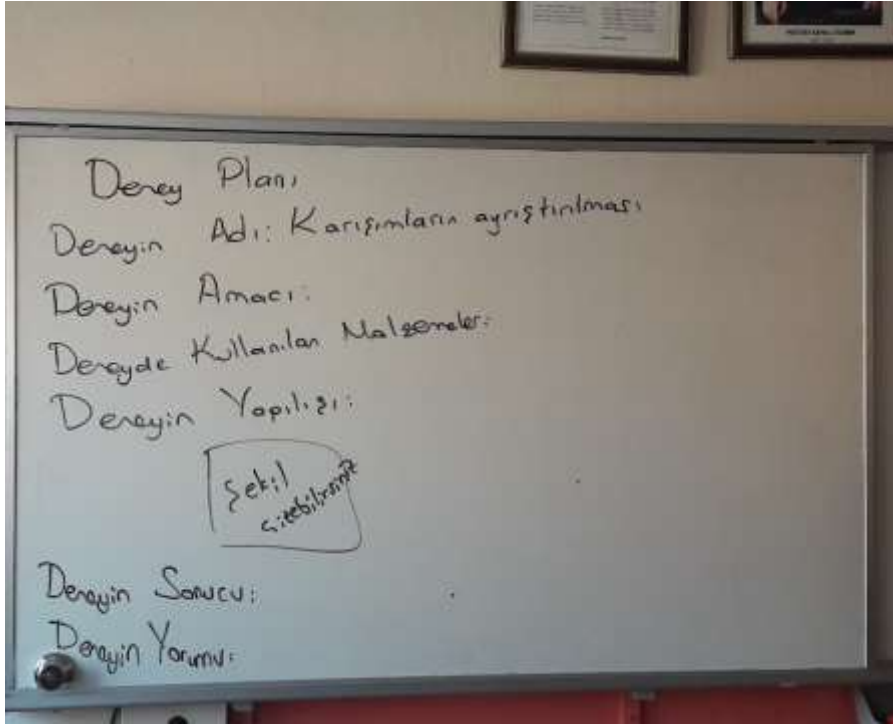 Deney Planı
Deneyin Adı: Karışımların ayrıştırılması
Deneyin Amacı:
Deneyde Kullanılan Malzemeler:
Deneyin Yapılışı:
Şekil
çizebilirsiniz
Deneyin Sonucu:
Deneyin Yorumu: